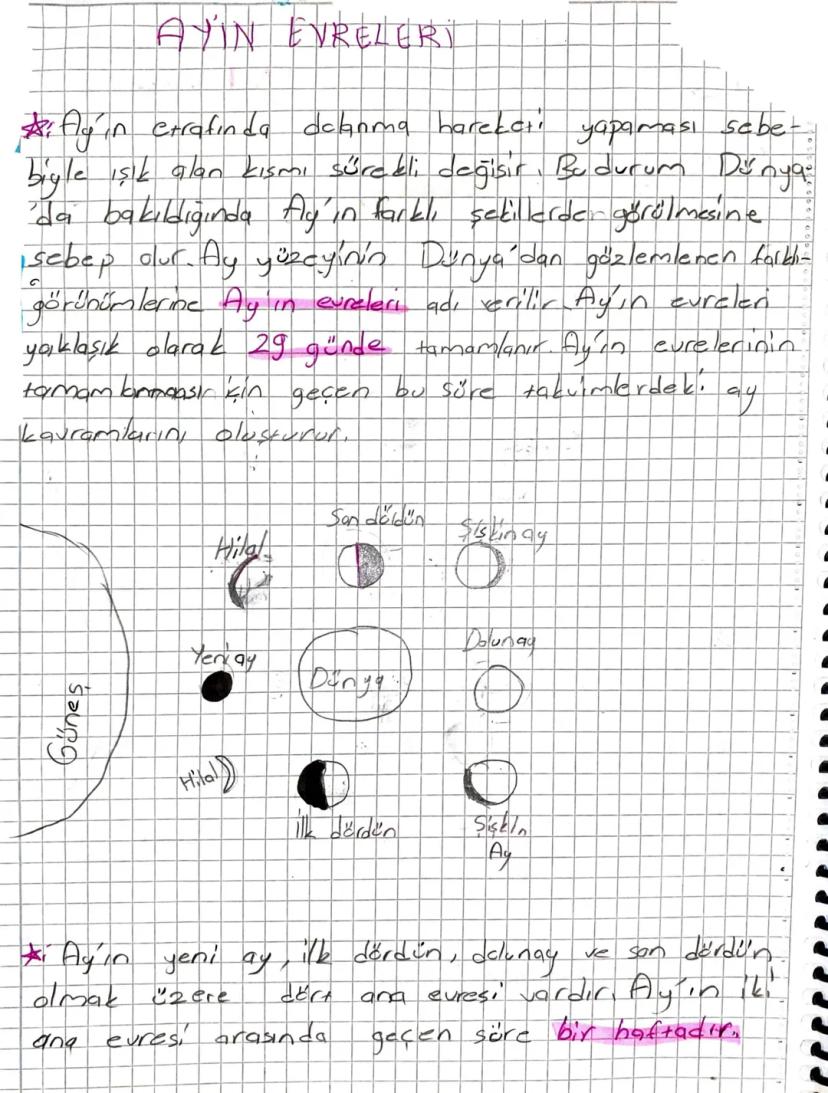 AY'IN EVRELERİ
*: Ay'ın etrafında dolanma hareketi yapaması sebe-
biyle ışık alan kısmı sürekli değişir. Bu durum Dünya-
'da bakıldığında Ay'ın farklı şekillerden görülmesine
sebep olur. Ay yüzeyinin Dünya'dan gözlemlenen farklı-
görünümlerine Ay'ın evreleri adı verilir. Ay'ın evreleri
yaklaşık olarak 29 günde tamamlanır. Ay'ın evrelerinin
için geçen bu süre takvimlerdeki ay
kavramlarını oluşturur.
Son dördün
Şişkin ay
Hilal
Dolunay
Yeni ay
Dünya
Güneş
Hilal
İlk dördün
Şişkin
Ay
*: Ay'ın yeni ay, ilk dördün, dolunay ve son dördün
olmak üzere dört ana evresi vardır. Ay'ın iki
ana evresi arasında geçen süre bir haftadır.